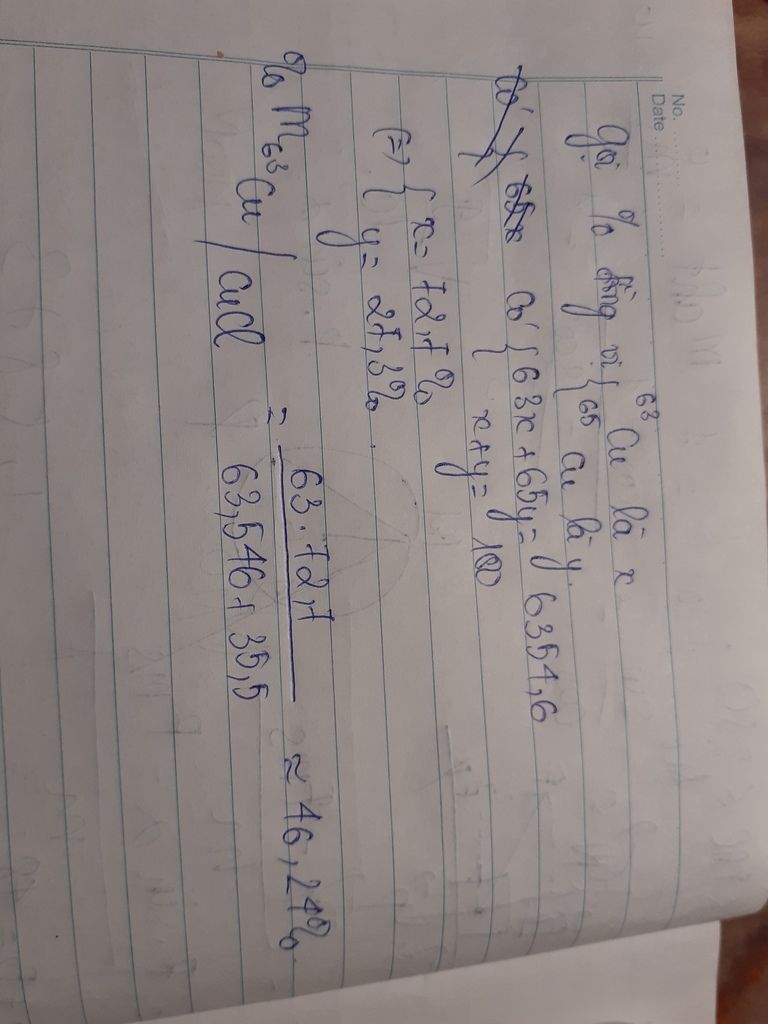 No. .........
Date .....................
gọi % đồng vị { 63 Cu là x
65 Cu là y
Có { 65x Có { 63x + 65y = 6354,6
x + y = 100
(=) { x = 72,7%
y = 27,3%.
% m 63 Cu / CuCl = 63 . 72,7 ≈ 46,24%
63,546 + 35,5